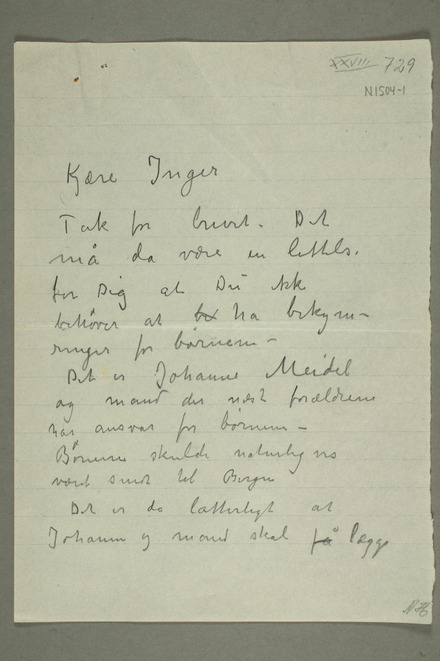 XXVIII 729
N1504-1
Kjære Inger
Tak for brevet. Det
må da være en lettels.
for Dig at Du ikk
behøver at ha bekym-
ringer for børnene -
Det er Johanne Meidel
og mand der næst forældrene
har ansvar for børnene -
Børnene skulde naturligvis
vært sendt til Bergen
Det er da latterligt at
Johanne og mand skal få lægge